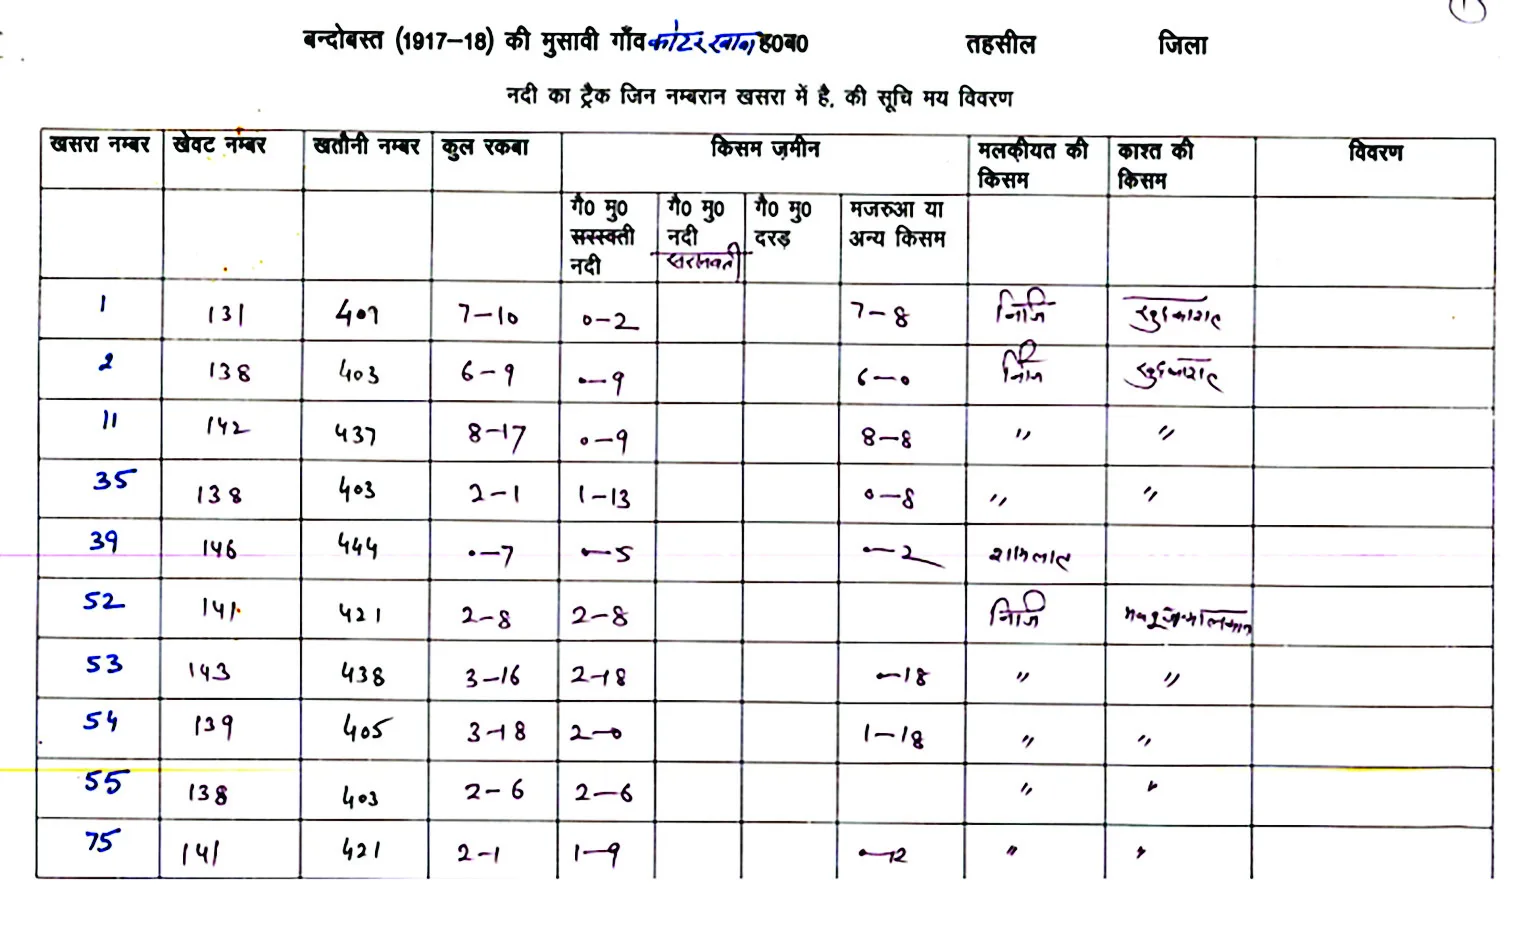 1
बन्दोबस्त (1917–18) की मुसावी गाँव कांटरखान ह0ब0 तहसील जिला
नदी का ट्रैक जिन नम्बरान खसरा में है, की सूचि मय विवरण
खसरा नम्बर खेवट नम्बर खतौनी नम्बर कुल रकबा किसम ज़मीन मलकीयत की किसम काश्त की किसम विवरण
गै0 मु0 सरस्वती नदी गै0 मु0 नदी सरस्वती गै0 मु0 दरड़ मजरुआ या अन्य किसम
1 131 407 7–10 0–2 7–8 निजि खुदकाशत
2 138 403 6–9 0–9 6–0 निजि खुदकाशत
11 142 437 8–17 0–9 8–8 " "
35 138 403 2–1 1–13 0–8 " "
39 146 444 0–7 0–5 0–2 शामलात
52 141 421 2–8 2–8 निजि
53 143 438 3–16 2–18 0–18 " "
54 139 405 3–18 2–0 1–18 " "
55 138 403 2–6 2–6 " "
75 141 421 2–1 1–9 0–12 " "